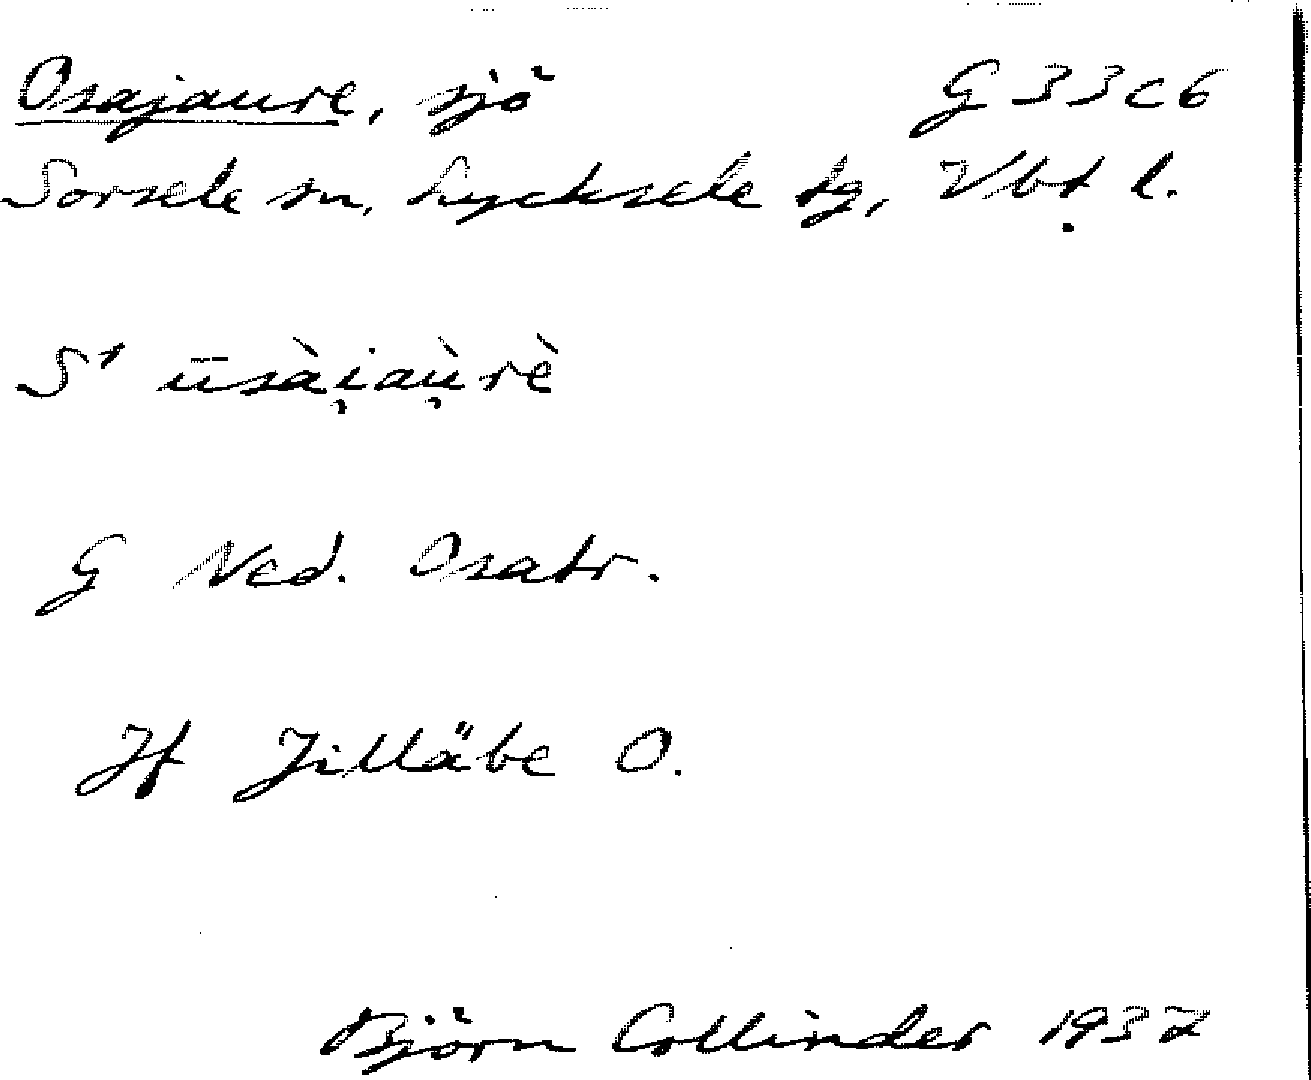 Osajaure, sjö G 33c6
Sorsele sn, Lycksele tg, Vbt l.
S' ūsài̯aù̯rè
G Ned. Osatr.
Jf Jilläbe O.
Björn Collinder 1937